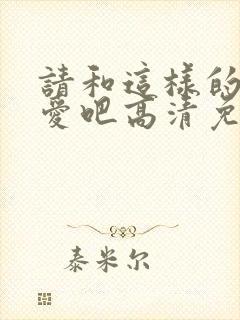 請和這樣的
愛吧高清免
泰米尔